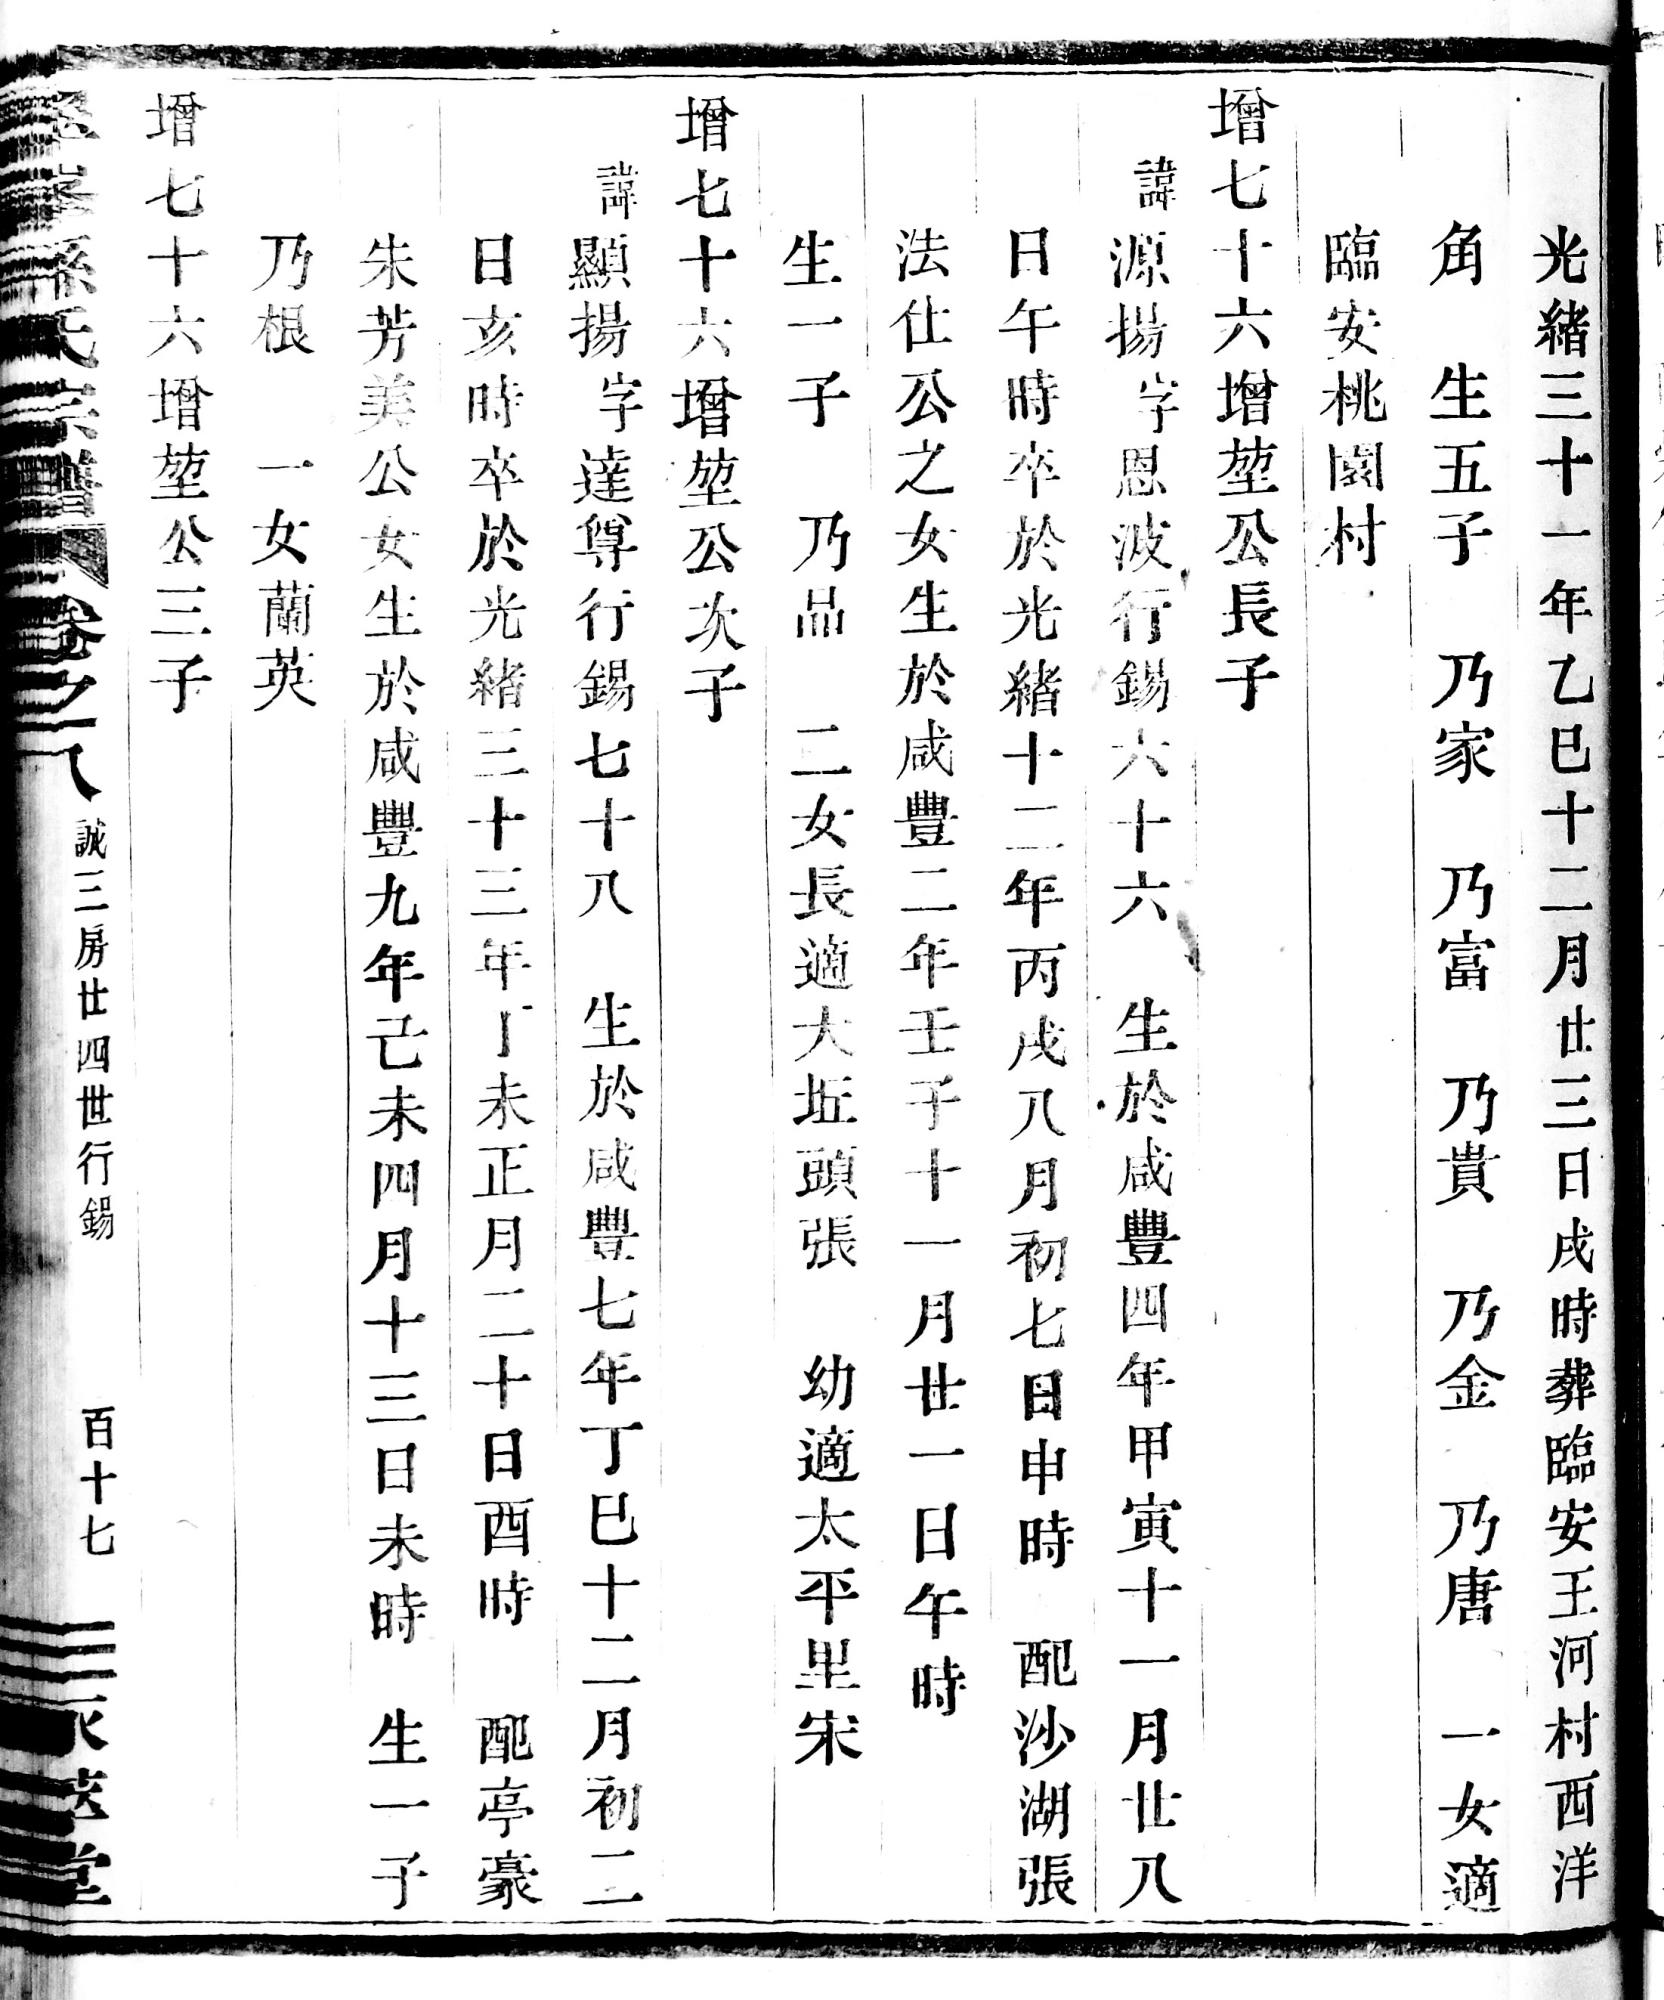 光緒三十一年乙巳十二月廿三日戌時葬臨安王河村西洋
角　生五子　乃家　乃富　乃貴　乃金　乃唐　一女適
臨安桃園村
增七十六增堃公長子
諱源揚字恩波行錫六十六　生於咸豐四年甲寅十一月廿八
日午時卒於光緒十二年丙戌八月初七日申時　配沙湖張
法仕公之女生於咸豐二年壬子十一月廿一日午時
生一子　乃品　二女長適大坵頭張　幼適太平里宋
增七十六增堃公次子
諱顯揚字達尊行錫七十八　生於咸豐七年丁巳十二月初二
日亥時卒於光緒三十三年丁未正月二十日酉時　配亭豪
朱芳美公女生於咸豐九年己未四月十三日未時　生一子
乃根　一女蘭英
增七十六增堃公三子
孫氏宗譜　卷之八　誠三房廿四世行錫　百十七　堂